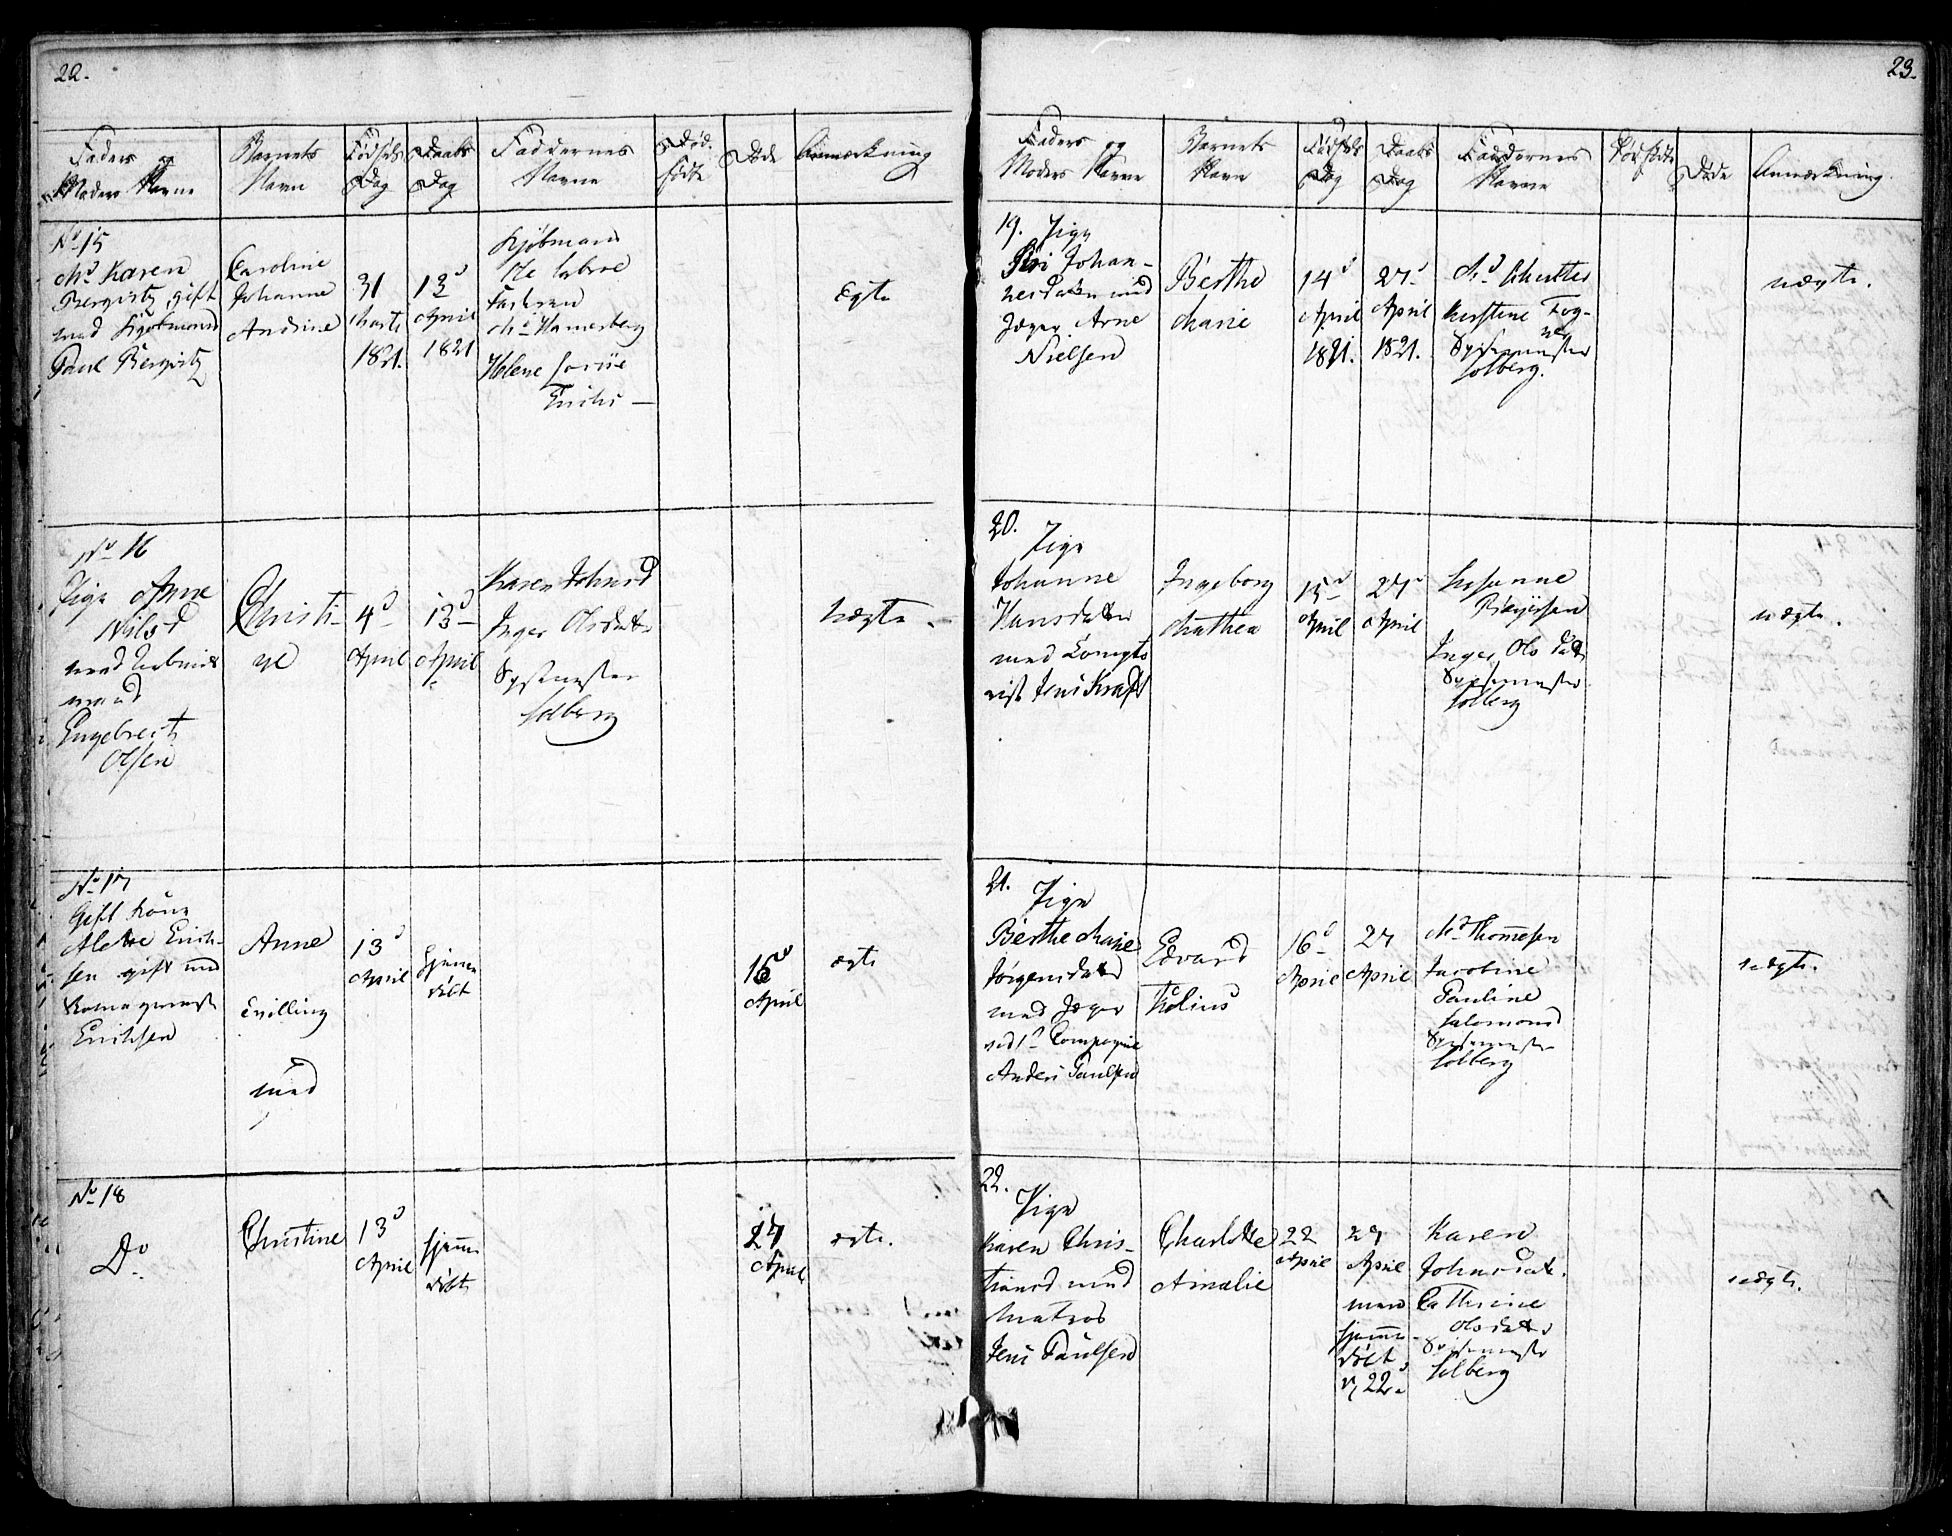 22.
Faders og
Moders Navne
Barnets
Navn
Fødsels
Dag
Daabs
Dag
Faddernes
Navne
Død-
fødte
Døde
Anmærkning
No 15
Md Karen
gift
med Kjøbmand
Paul
Caroline
Johanne
Andrine
31
Marts
1821.
13d
April
1821
Kjøbmand
Md Hamerberg
Helene
Ægte
No 16
Pige Anne
Nilsd
med
mand
Engebret
Olsen
Christi-
ne
4d
April
13d
April
Karen Johnsd
Inger Olsdatter
Spisemester
Solberg
Uægte.
No 17
Gift Kone
Erich-
sen gift med
Erichsen
Anne
Tvilling
med
13d
April
Hjemme
døbt
16d
April
ægte
No 18
Do
Christine
13d
April
hjemme
døbt
27
April
ægte.
23.
Faders og
Moders Navne
Barnets
Navn
Fødsels
Dag
Daabs
Dag
Faddernes
Navne
Død fødte
Døde
Anmærkning.
19. Pige
Johan-
nesdatter med
Jæger Arne
Nielsen
Berthe
Marie
14d
April
1821.
27d
April
1821.
Kirstine
Spisemester
Solberg.
uægte.
20.
Pige
Johanne
Hansdatter
med
Jens Kraft
Ingeborg
Mathea
15d
April
27d
April
Susanne
Inger Olsdatter
Spisemester
Solberg
uægte.
21.
Pige
Berthe Marie
Jørgensdatter
med Jæger
ved 1ste Compagnie
Anders Paulsen
Edvard
16d
April
27
April
Md Thomesen
Jacobine
Pauline
Salomonsd
Spisemester
Solberg
uægte.
22.
Pige
Karen Chris-
tiansd med
Matros
Jens Paulsen
Charlotte
Amalie
22
April
27
April
men
hjemme-
døbt
d 22d
Karen
Johnsdatter.
Cathrine
Olsdatter
Spisemester
Solberg
uægte.